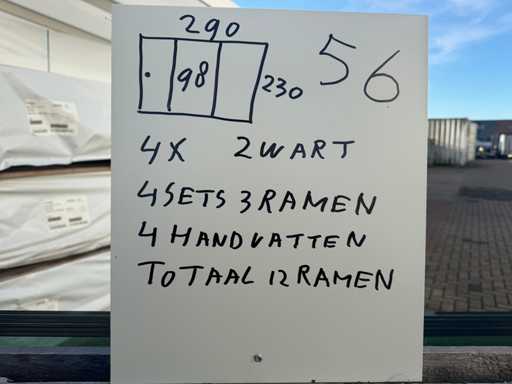 290
56
98
230
4X ZWART
4 SETS 3 RAMEN
4 HANDVATTEN
TOTAAL 12 RAMEN